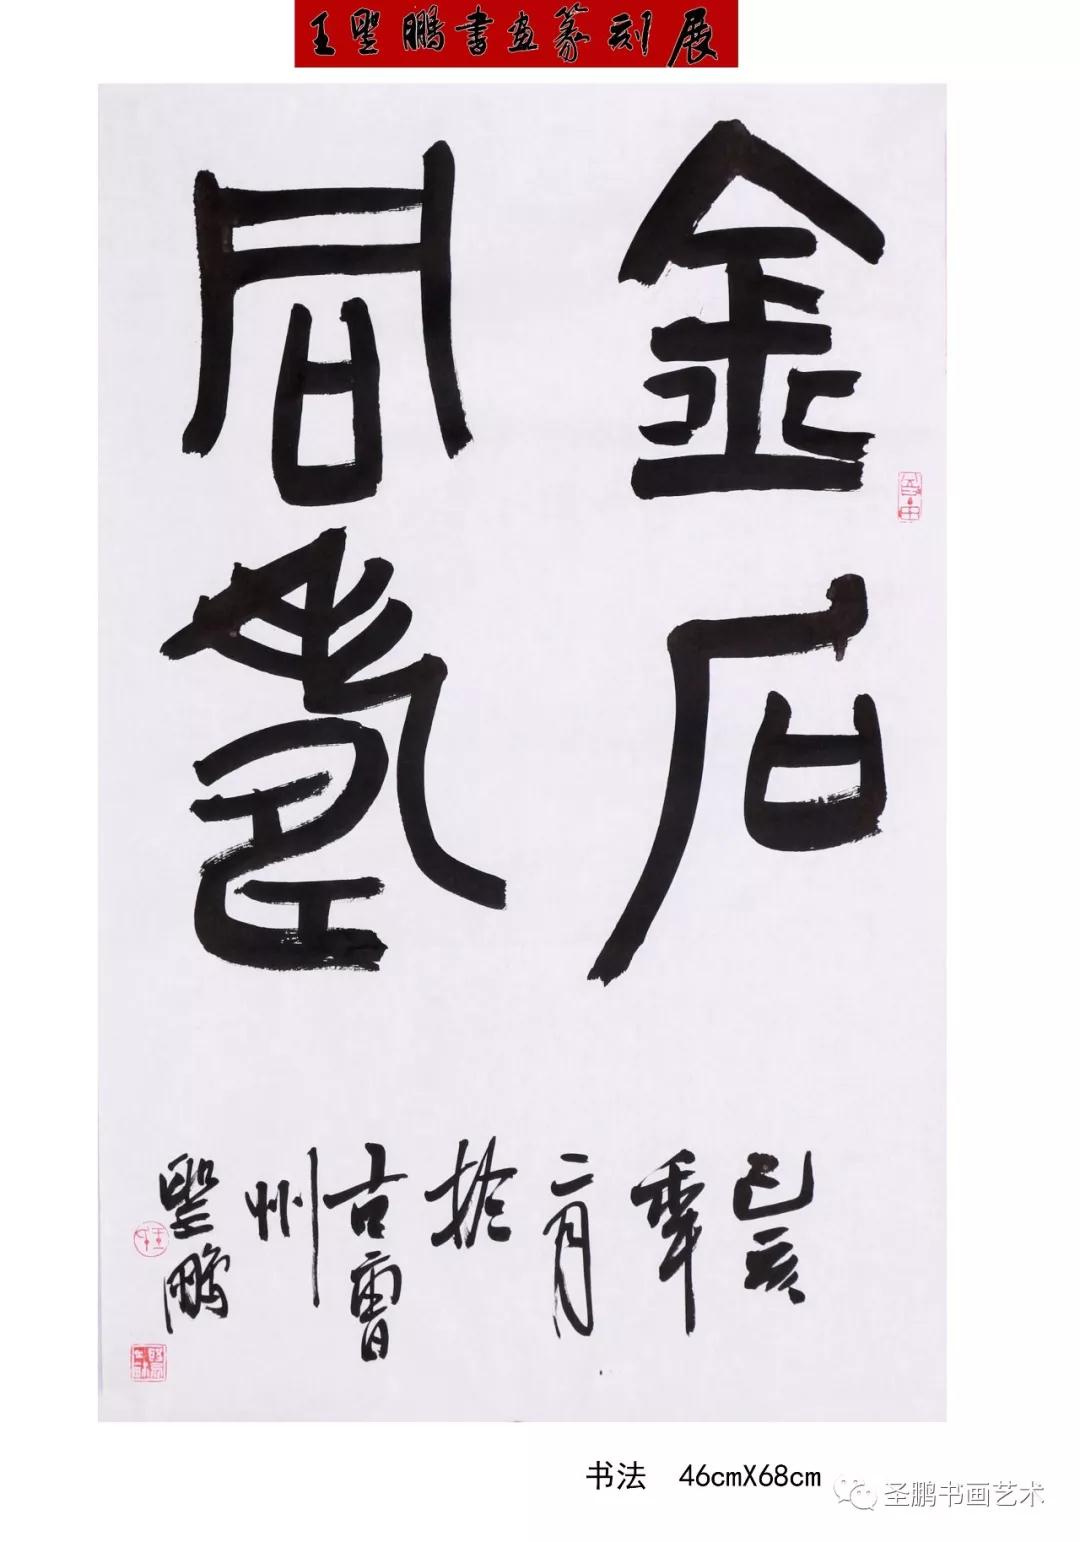 王聖鵬書画篆刻展
金石
同壽
己亥
年
二月
於
古曹
州
聖鵬
书法 46cmX68cm
圣鹏书画艺术